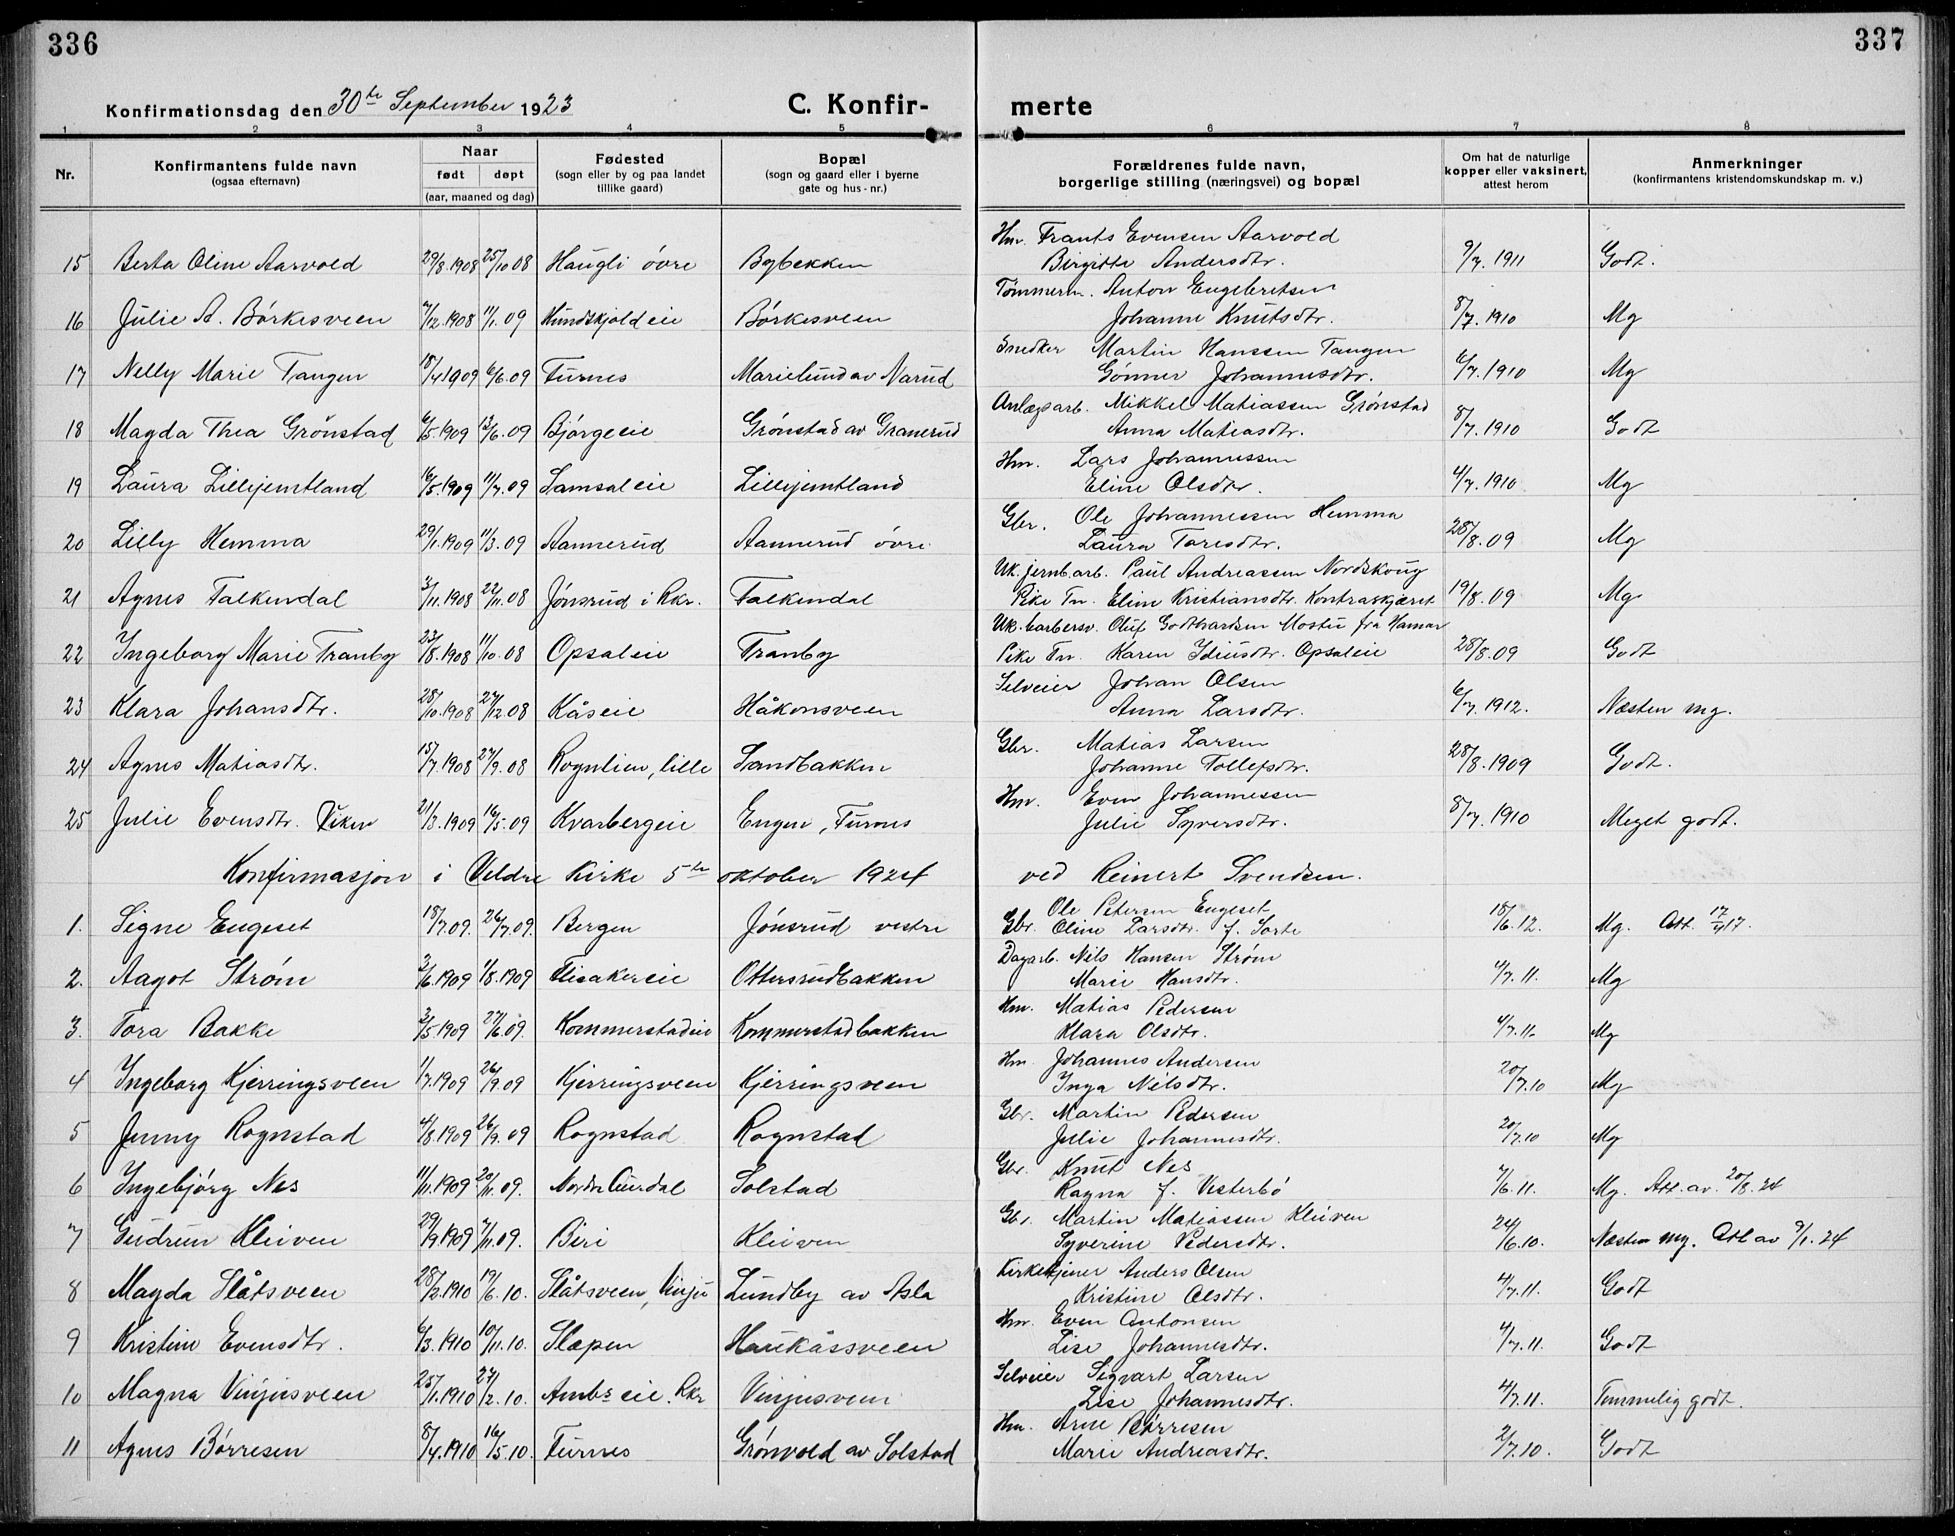 336
337
Konfirmationsdag den 30te September 1923
C. Konfir-
merte
1 2 3 4 5 6 7 8
Nr.
Konfirmantens fulde navn
(ogsaa efternavn)
Naar
født døpt
(aar, maaned og dag)
Fødested
(sogn eller by og paa landet
tillike gaard)
Bopæl
(sogn og gaard eller i byerne
gate og hus-nr.)
Forældrenes fulde navn,
borgerlige stilling (næringsvei) og bopæl
Om hat de naturlige
kopper eller vaksinert,
attest herom
Anmerkninger
(konfirmantens kristendomskundskap m. v.)
Hm. Frants Evensen Aarvold
15 Berta Oline Aarvold 29/8.1908 25/10 08 Haugli övre Bybekken Birgitte Andersdtr. 9/7.1911 Godt.
Tömmerm. Anton Engebretsen
16 Julie A. Börkesveen 7/12.1908 11/1.09 Hundskjoldeie Börkesveen Johanne Knutsdtr. 8/7.1910 Mg
Snedker Martin Hanssen Tangen
17 Nelly Marie Tangen 18/4.1909 6/6.09 Furnes Marielund av Narud Gönner Johannesdtr. 6/7.1910 Mg
Anlægsarb. Mikkel Matiassen Grönstad
18 Magda Thea Grönstad 6/5.1909 13/6.09 Björgeeie Grönstad av Granerud Anna Matiasdtr. 8/7.1910 Godt
Hm. Lars Johannessen
19 Laura Lillejemtland 16/5.1909 11/7.09 Samsaleie Lillejemtland Eline Olsdtr. 4/7.1910 Mg
Gbr. Ole Johannessen Hemma
20 Lilly Hemma 29/1.1909 11/3.09 Aannerud Aannerud övre Laura Toresdtr. 28/8.09 Mg
Uk. jernb.arb. Paul Andreassen Nordskoug
21 Agnes Falkendal 3/11.1908 22/11.08 Jönsrud i Rkr. Falkendal Pike Tn. Eline Kristiansdtr. Kontraskjæret 19/8.09 Mg
Uk. barbersv. Oluf Godtvardsen Mostu frå Hamar
22 Ingeborg Marie Tranby 23/8.1908 11/10.08 Opsaleie Tranby Pike Tn. Karen Idiusdtr. Opsaleie 28/8.09 Godt
Selveier Johan Olsen
23 Klara Johansdtr. 28/10.1908 27/12.08 Kåseie Håkonsveen Anna Larsdtr. 6/7.1912. Næsten mg.
Gbr. Matias Larsen
24 Agnes Matiasdtr. 15/7.1908 27/9.08 Rognlien, lille Sandbakken Johanne Tollefsdtr. 28/8.1909 Godt.
Hm. Even Johannessen
25 Julie Evensdtr. Viken 21/3.1909 16/5.09 Kvarbergeie Engen, Furnes Julie Syversdtr. 8/7.1910 Meget godt.
Konfirmasjon i Veldre Kirke 5te oktober 1924 ved Reinert Svendsen.
Ole Petersen Engeset
1. Signe Engeset 18/7.09. 26/7.09. Bergen Jönsrud vestre Gbr. Oline Larsdtr. f. Sorte 18/6.12. Mg. Att. 17/4 17.
Dagarb. Nils Hansen Ström
2. Aagot Ström 3/6.1909 1/8.1909 Flisakereie Ottersrudbakken Marie Hansdtr. 4/7.11. Mg
Hm. Matias Pedersen
3. Tora Bakke 3/5.1909 27/6.09. Kommerstadeie Kommerstadbakken Klara Olsdtr. 4/7.11. Mg
Hm. Johannes Andersen
4 Ingeborg Kjerringsveen 1/7.1909 26/9.09 Kjerringsveen Kjerringsveen Inga Nilsdtr. 20/7.10 Mg
Gbr. Martin Pedersen
5 Jenny Rognstad 4/8.1909 26/9.09 Rognstad Rognstad Julie Johannesdtr. 20/7.10 Mg
Gbr. Knut Nes
6 Ingebjörg Nes 11/11.1909 20/11.09. Nordre Aurdal Solstad Ragna f. Vesterbö 7/6.11. Mg. Att. av. 20/8.24
Gbr. Martin Matiassen Kleiven
7 Gudrun Kleiven 29/9.1909 7/11.09. Biri Kleiven Syverine Pedersdtr. 24/6.10. Næsten mg. Att av 9/1.24
Kirketjener Anders Olsen
8 Magda Slåtsveen 28/2.1910 19/6.10. Slåtsveen, Vinju Lundby av Asla Kristine Olsdtr. 4/7.11. Godt
Hm. Even Antonsen
9 Kristine Evensdtr. 6/3.1910 10/11.10. Slepen Haukåssveen Lise Johannesdtr. 4/7.11. Godt
Selveier Sigvart Larsen
10 Magna Vinjusveen 25/1.1910 27/2.10. Ambs eie. Rkr Vinjusveen Lise Johannesdtr. 4/7.11. Temmelig godt.
Hm. Arne Börresen
11 Agnes Börresen 8/4.1910 16/5.10. Furnes Grönvold av Solstad Marie Andreasdtr. 2/7.10. Godt